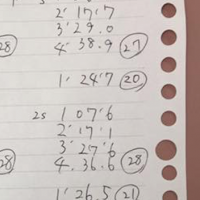 2'17'7
3'29.0
28 4'38.9 27
1'24'7 20
2s 1 07'6
2'17'1
3'27'6
28 4.36.6 28
1'26.5 21